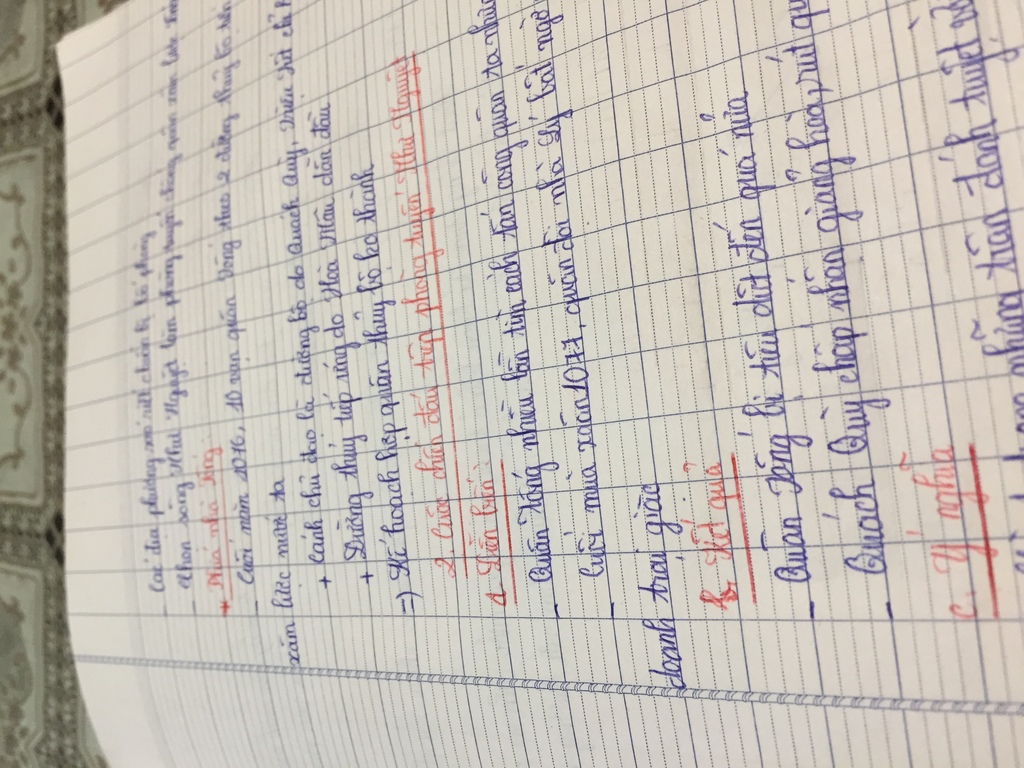 - Các địa phương ráo riết chuẩn bị bố phòng
- Chọn sông Như Nguyệt làm phòng tuyến chống quân xâm lược
* Phía nhà Tống
- Cuối năm 1076, 10 vạn quân Tống theo 2 đường thủy bộ tiến
xâm lược nước ta
+ Cánh chủ đạo là đường bộ do Quách Quỳ, Triệu Tiết chỉ
+ Đường thủy tiếp ứng do Hoà Mâu dẫn đầu
=> Kế hoạch hợp quân thủy bộ ko thành
2. Cuộc chiến đấu trên phòng tuyến Như Nguyệt
a. Diễn biến:
- Quân Tống nhiều lần tìm cách tấn công quân ta
- Cuối mùa xuân 1077, quân đội nhà Lý bất ngờ
doanh trại giặc
b. Kết quả
- Quân Tống bị tiêu diệt đến quá nửa
- Quách Quỳ chấp nhận giảng hoà, rút
c. Ý nghĩa
những trận đánh tuyệt